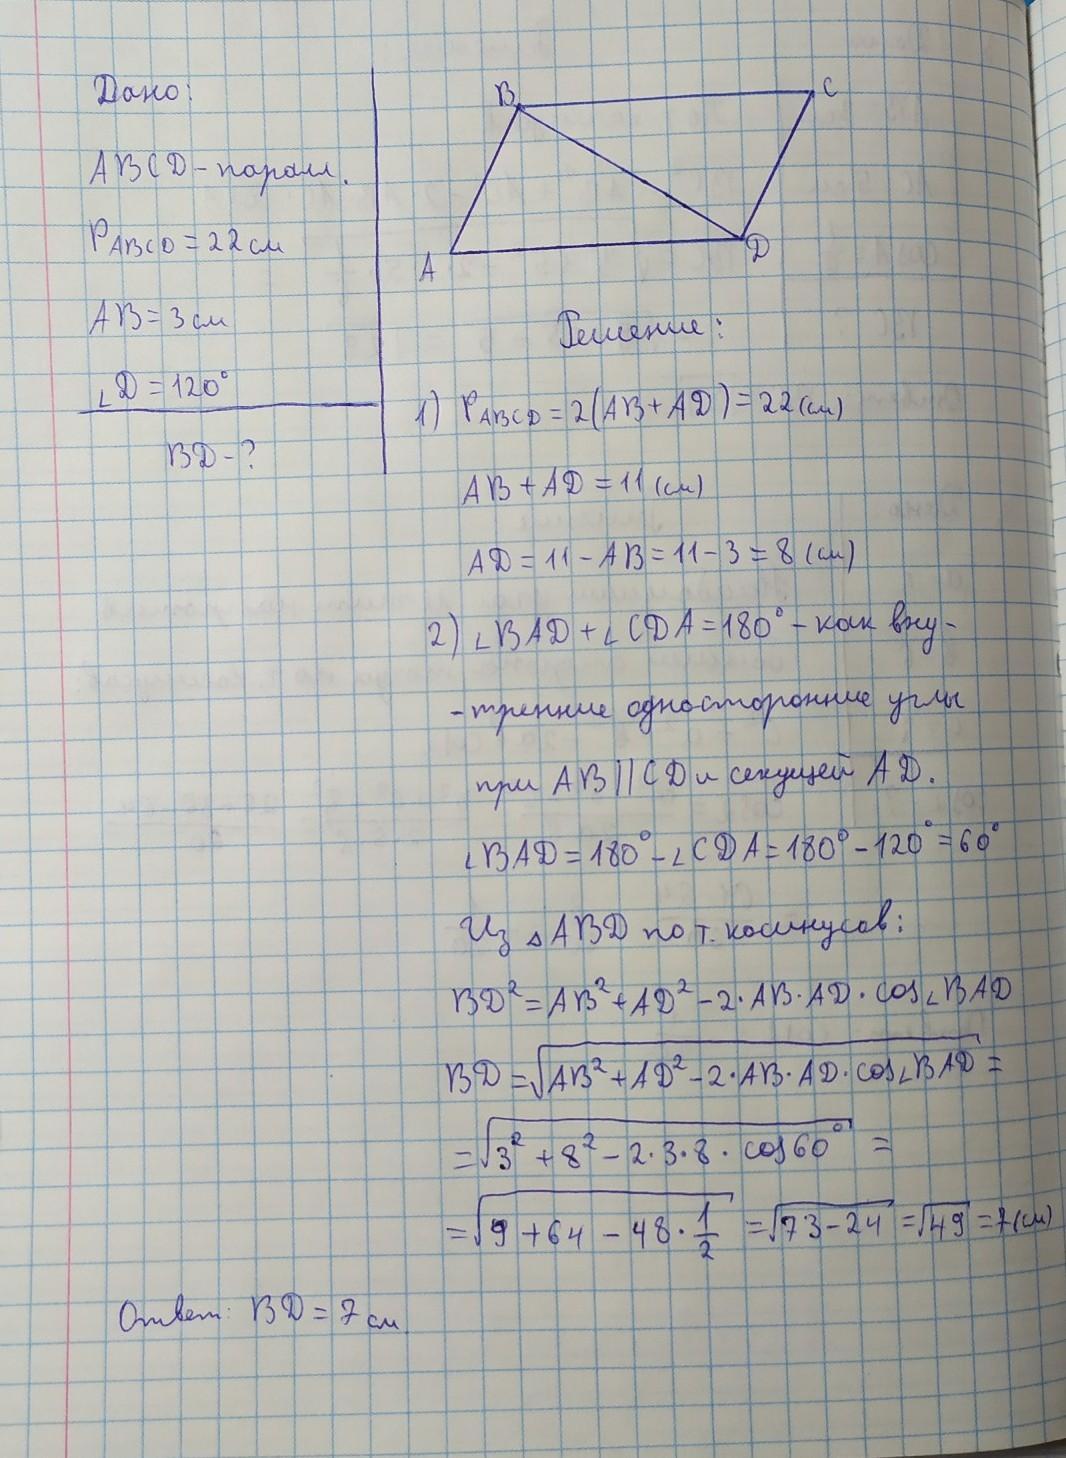 Дано:
ABCD - паралл.
P_ABCD = 22 см
AB = 3 см
∠D = 120°
BD - ?
B
C
A
D
Решение:
1) P_ABCD = 2(AB + AD) = 22 (см)
AB + AD = 11 (см)
AD = 11 - AB = 11 - 3 = 8 (см)
2) ∠BAD + ∠CDA = 180° - как вну-
-тренние односторонние углы
при AB || CD и секущей AD.
∠BAD = 180° - ∠CDA = 180° - 120° = 60°
Из △ABD по т. косинусов:
BD² = AB² + AD² - 2·AB·AD·cos∠BAD
BD = √(AB² + AD² - 2·AB·AD·cos∠BAD) =
= √(3² + 8² - 2·3·8·cos60°) =
= √(9 + 64 - 48·1/2) = √(73 - 24) = √49 = 7 (см)
Ответ: BD = 7 см